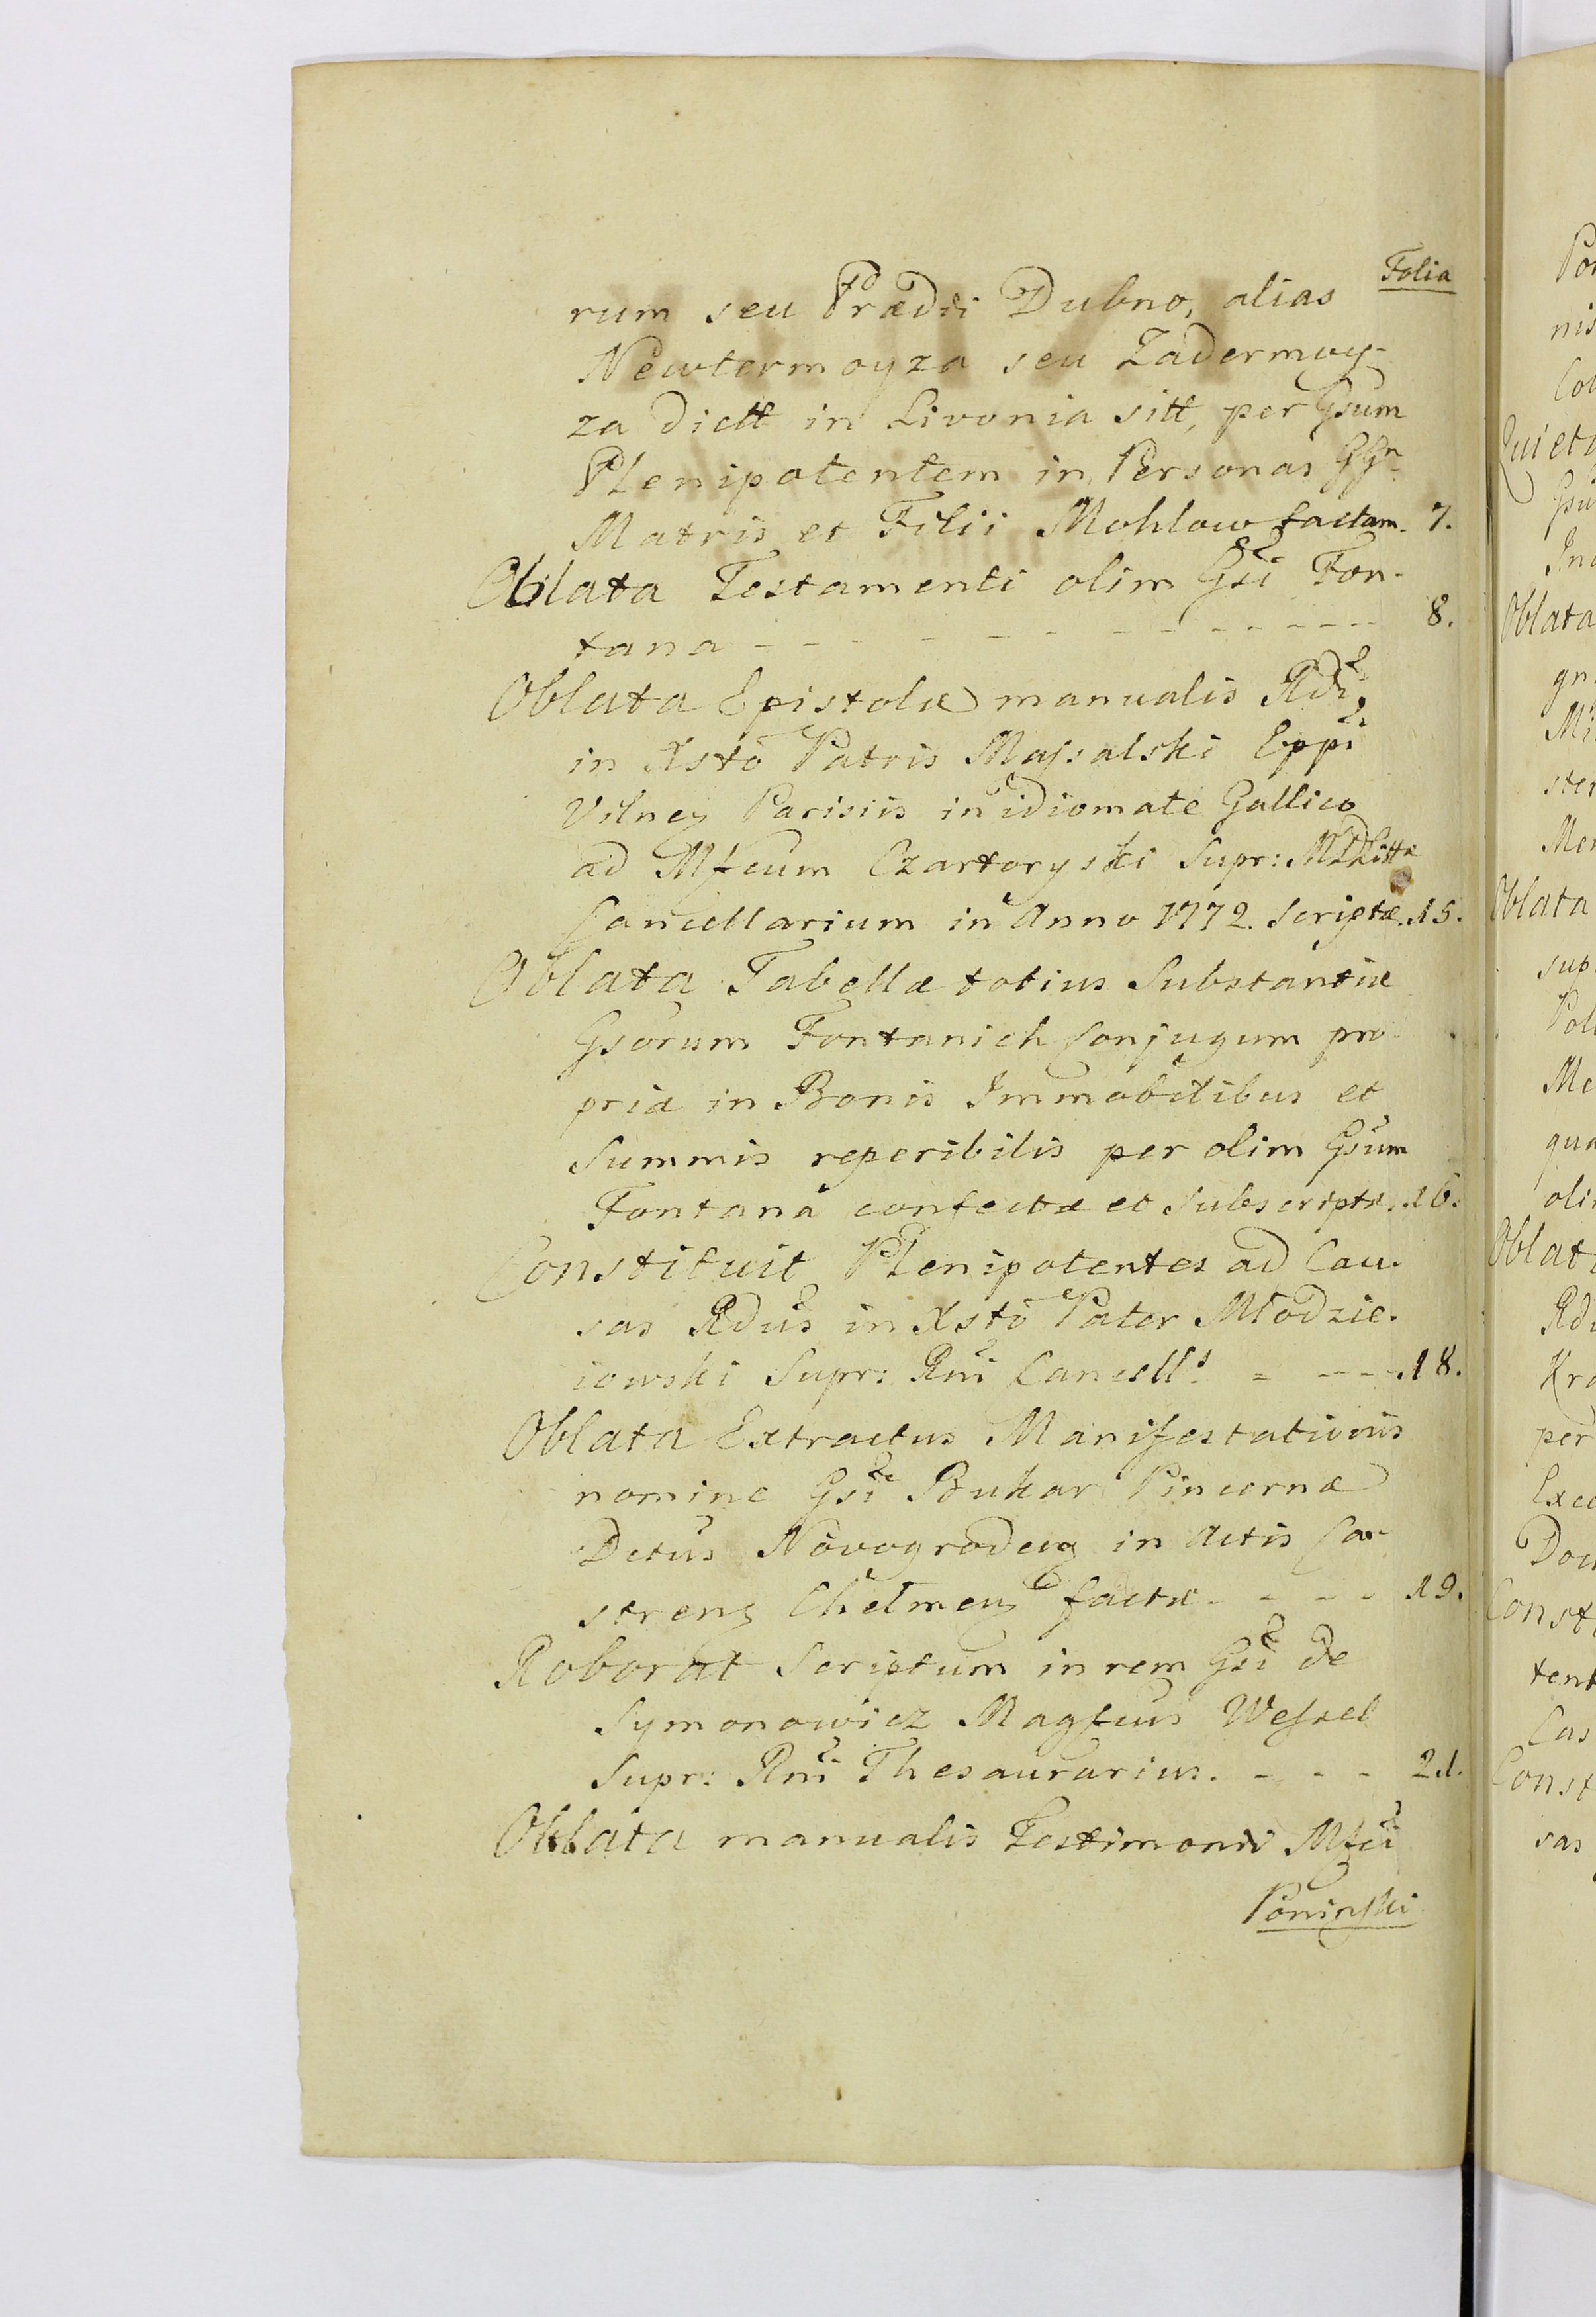 Folia
rum seu Prædii Dubno, alias
Newtermoyza seu Zadermuy-
za dictt in Livonia sitt, per Gsum
Plenipotentem in Personas GGn
Matris et Filii Mohlow factam. 7.
Oblata Testamenti olim Gsi Fon-
tana - - - - - - - - - - - 8.
Oblata Epistolæ manualis Rdi
in Xsto Patris Massalski Eppi
Vilney Parisiis in idiomate Gallico
ad Mfcum Czartoryski Supr: MDLittæ
Cancellarium in Anno 1772. Scriptæ. 15.
Oblata Tabellæ totius Substantiæ
Gsorum Fontanich Conjugum pro
priæ in Bonis Immobilibus et
Summis reperibilis per olim Gsum
Fontana confectæ et Subscriptæ. 16.
Constituit Plenipotentes ad Cau-
sas Rdus in Xsto Pater Młodzie-
iowski Supr: Rni Cancells - - - - 18.
Oblata Extractus Manifestationis
nomine Gsi Buhar Pincernæ
Dctus Novogrodeng in Actis Ca-
streng Chełmeng factæ - - - - 19.
Roborat Scriptum in rem Gsi de
Symonowicz Magfcus Wessel
Supr: Rni Thesaurarius. - - - 21.
Oblata manualis Testimonii Mfci
Poninski
Quieta
Oblata
Oblata
sup
qua
per
tent
Const
sas